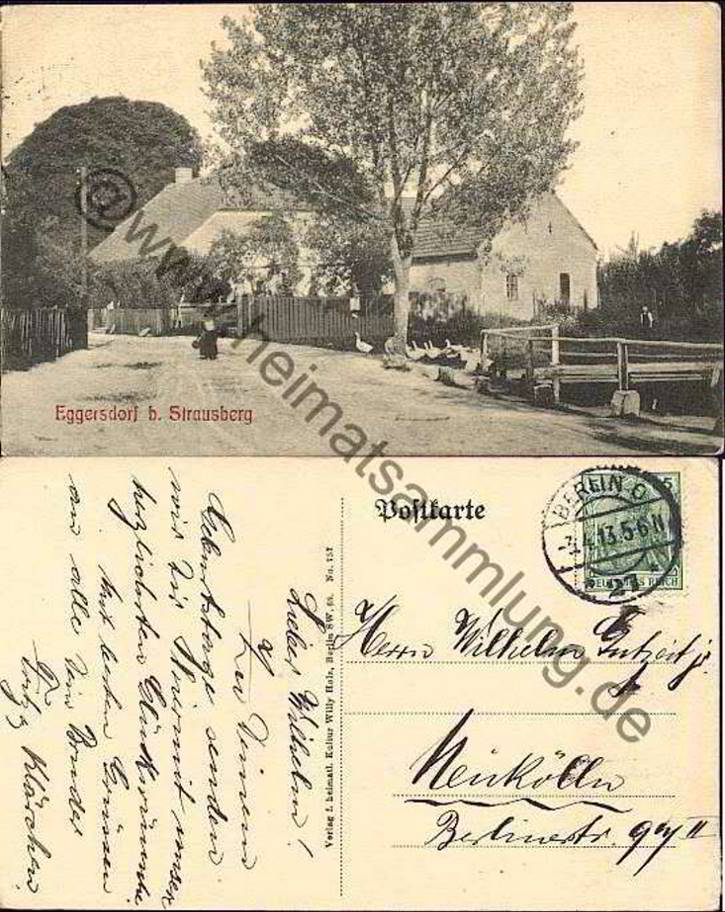 Eggersdorf b. Strausberg
@www.heimatsammlung.de
Postkarte
BERLIN O
-3.4.13.5-6N
2
*
5
DEUTSCHES REICH
Herrn Wilhelm Gutzeit jr.
Neukölln
Berlinerstr.
II
Verlag f. heimatl. Kultur Willy Holz, Berlin SW. 68. No. 157
Lieber Wilhelm!
Zu Deinem
Geburtstage senden
wir Dir hiermit unsere
herzlichsten Glückwünsche
Mit besten Grüssen
an alle Dein Bruder
Klärchen